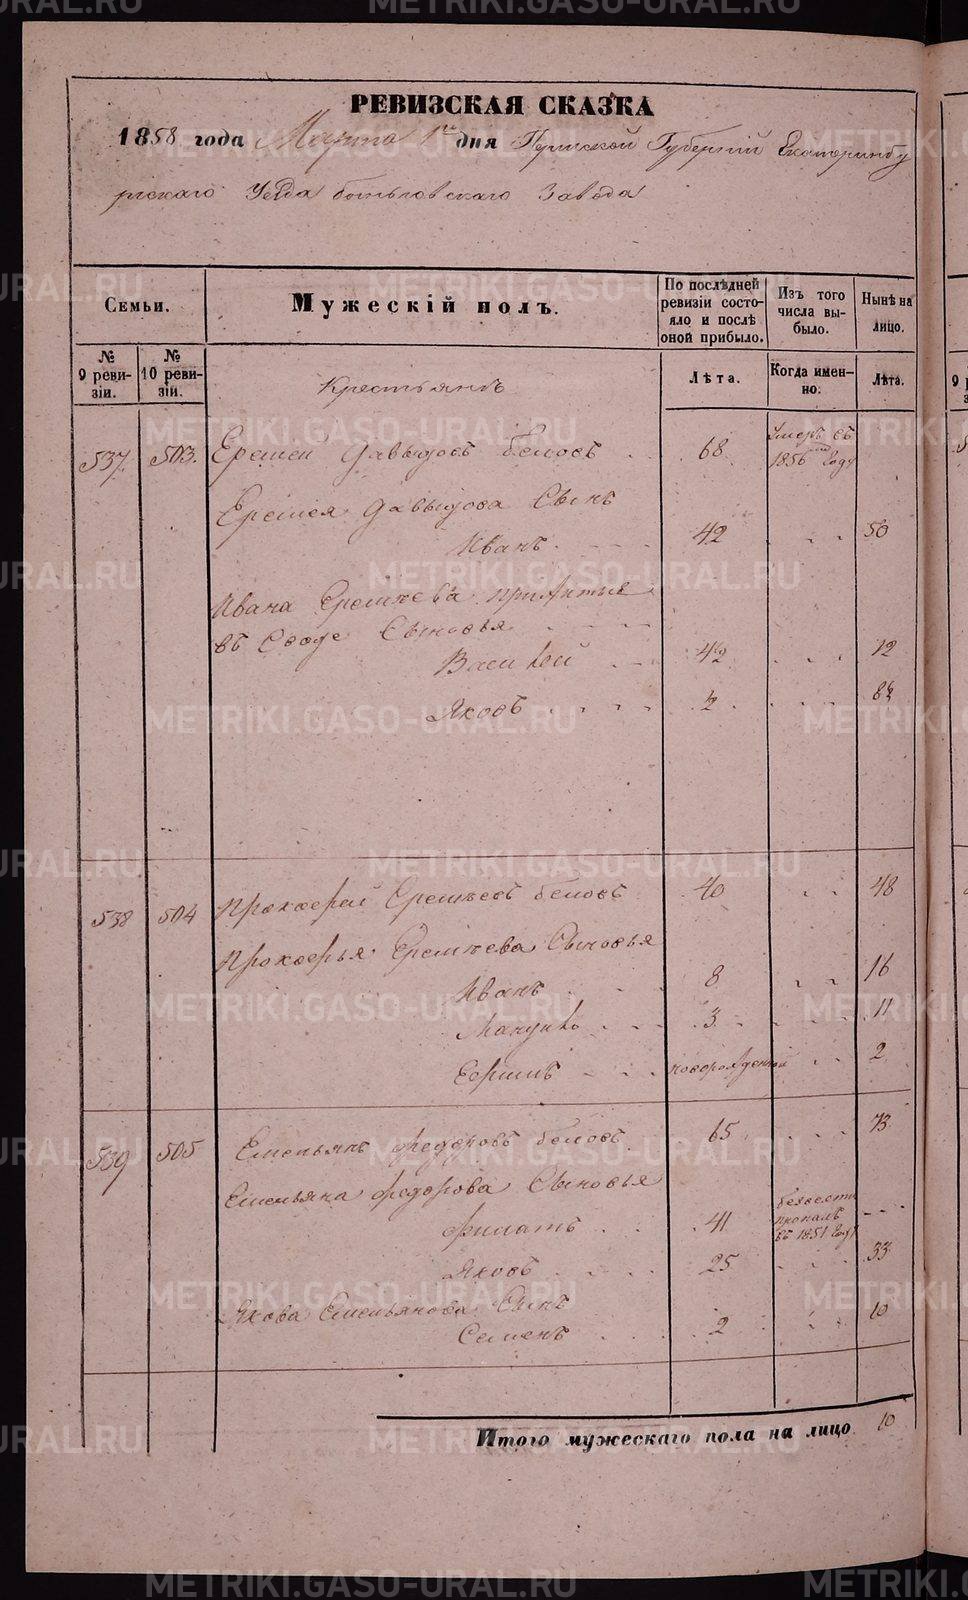 РЕВИЗСКАЯ СКАЗКА
1858 года Марта 1го дня Пермской Губерніи Екатеринбу
ргскаго Уезда завода
Семьи.
Мужескій полъ.
По послѣдней ревизіи состояло и послѣ оной прибыло.
Изъ того числа выбыло.
Нынѣ на лицо.
№ 9 ревизіи.
№ 10 ревизіи.
Крестьянъ
Лѣта.
Когда именно.
Лѣта.
537. 503. Еремей Давыдовъ Беловъ 68 Умеръ въ 1856 Году
Еремея Давыдова Сынъ
Иванъ 42 50
Ивана Еремѣева
въ Сынovья
Василей 42 12
Яковъ 2
538 504 Прокофей Еремѣевъ Беловъ 40 48
Прокофья Еремѣева Сыновья
Иванъ 8 16
Мануилъ 3 11
новорожденной 2
539 505 Емельянъ Федоровъ Беловъ 65 73
Емельяна Федорова Сыновья
Филатъ 41 безвести пропалъ въ 1851 Году
Яковъ 25 33
Якова Емельянова Сынъ
Семенъ 2 10
Итого мужескаго пола на лицо 10
METRIKI.GASO-URAL.RU